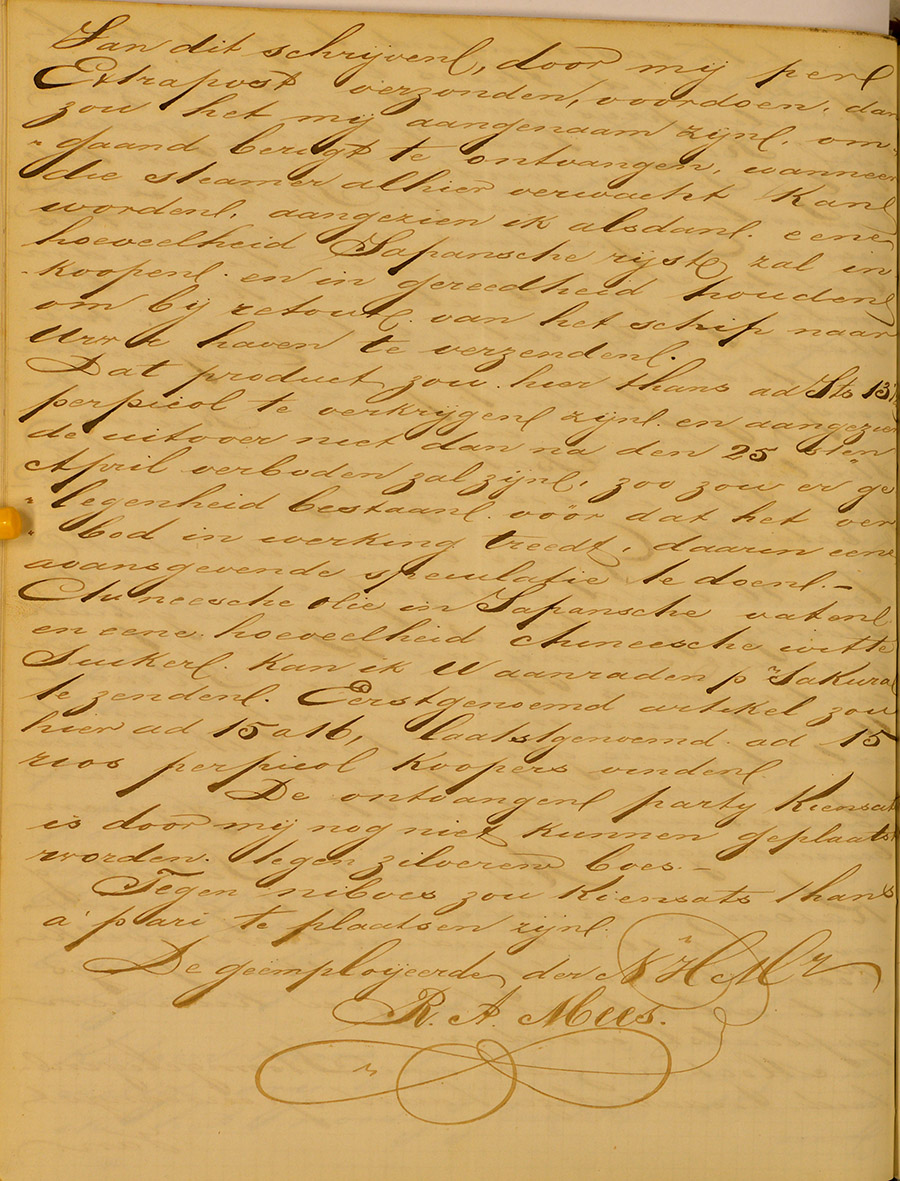 Van dit schrijven, door mij per
Extrapost verzonden, voordoen, dan
zou het mij aangenaam zijn, om„
„gaand berigt te ontvangen, wanneer
die steamer alhier verwacht kan
worden, aangezien ik alsdan eene
hoeveelheid Japansche rijst zal in
„koopen en in gereedheid houden
om bij retour van het schip naar
Uwe haven te verzenden.
Dat product zou hier thans ad Its 13
per picol te verkrijgen zijn en aangezien
de uitvoer niet dan na den 25 sten
April verboden zal zijn, zoo zou er ge
„legenheid bestaan vóór dat het ver
„bod in werking treedt, daarin eene
avansgevende speculatie te doen.–
Chineesche olie in Japansche vaten
en eene hoeveelheid Chineesche witte
Suiker kan ik U aanraden pr Sakura
te zenden. Eerstgenoemd artikel zou
hier ad 15 a 16, laatstgenoemd ad 15
rios per picol koopers vinden.
De ontvangen party Kiensats
is door mij nog niet kunnen geplaatst
worden tegen zilveren boes.–
Tegen niboes zou Kiensats thans
a' pari te plaatsen zijn.
De geëmployeerde der N H Mr
R. A. Mees.